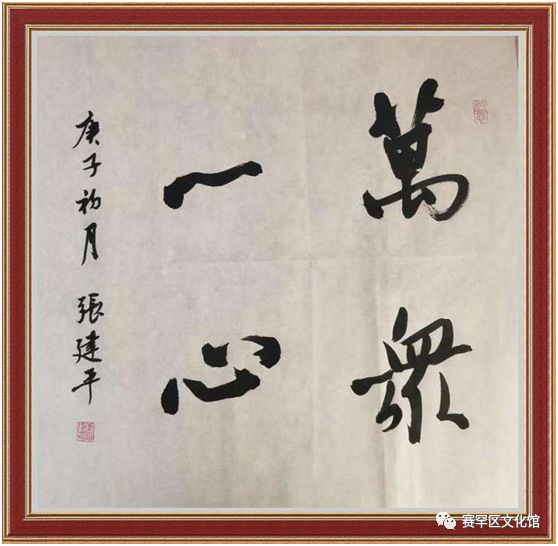 萬眾
一心
庚子初月 張建平
赛罕区文化馆